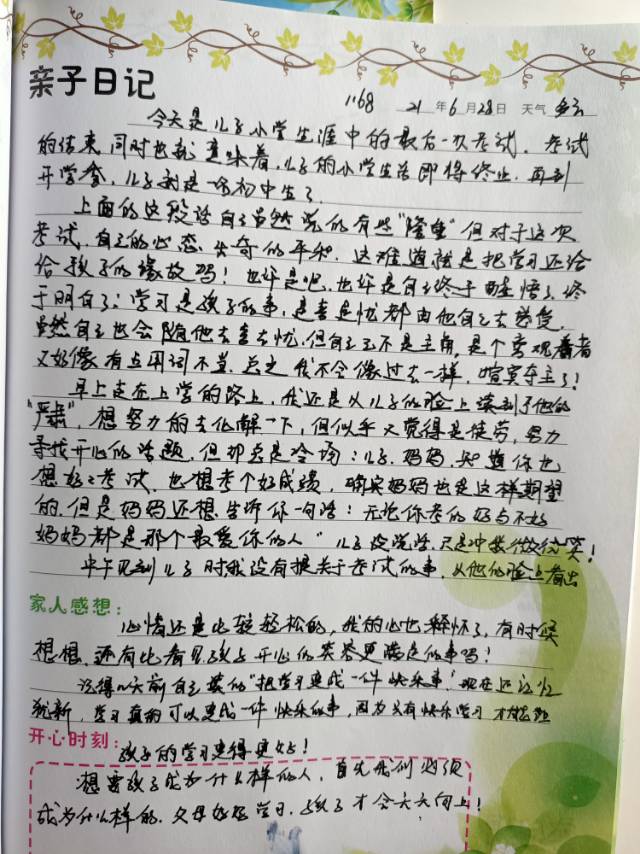 亲子日记
1168 21年6月28日 天气 多云
今天是儿子小学生涯中的最后一次考试. 考试
的结束, 同时也就意味着, 儿子的小学生活即将终止. 再到
开学拿, 儿子就是一名初中生了.
上面的这段话自己虽然说的有些“隆重”但对于这次
考试, 自己的心态出奇的平和. 这难道就是把学习还给
给孩子的缘故吗! 也许是吧, 也许是自己终于醒悟了, 终
于明白了: 学习是孩子的事, 是喜是忧都由他自己去感受,
虽然自己也会随他去喜去忧, 但自己不是主角, 是个旁观者
又好像有点用词不当. 总之我不会像过去一样, 喧宾夺主了!
早上走在上学的路上, 我还是从儿子的脸上读到了他的
“严肃”, 想努力的去化解一下, 但似乎又觉得是徒劳, 努力
寻找开心的话题, 但却总是冷场: 儿子, 妈妈, 知道你也
想好好考试, 也想考个好成绩, 确实妈妈也是这样期望
的. 但是妈妈还想告诉你一句话: 无论你考的好与不好
妈妈都是那个最爱你的人” 儿子没说话, 只是冲我微微笑!
中午见到儿子时我没有提关于考试的事, 从他的脸上看出
家人感想:
心情还是比较轻松的, 我的心也释怀了, 有时候
想想, 还有比看见孩子开心的笑容更满足的事吗!
记得几天前自己装的“把学习变成一件快乐事”现在还记忆
犹新, 学习真的可以变成一件快乐的事, 因为只有快乐学习 才能让
开心时刻:
孩子的学习变得更好!
想要孩子成为什么样的人, 首先我们必须
成为什么样的. 父母好好学习, 孩子才会天天向上!